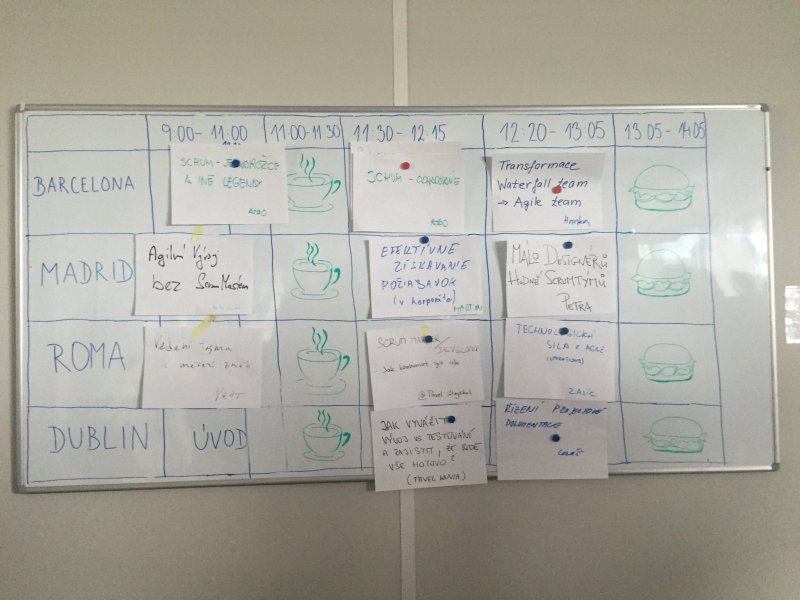 9:00- 11:00
11:00-11:30
11:30 - 12:15
12:20 - 13:05
13:05 - 14:05
BARCELONA
SCRUM - JEDNOROŽCE
A INÉ LEGENDY
ROBO
SCRUM -
ROBO
Transformace
Waterfall team
→ Agile team
MADRID
Agilní Vývoj
bez ScrumMasterů
EFEKTIVNE
ZÍSKAVANIE
POŽIADAVOK
(v korporáte)
MÁLO DESIGNÉRŮ
HODNĚ SCRUMTÝMŮ
PETRA
ROMA
Vedení týmu
a měření změn
PETR
SCRUM
DEVELOPER
Jak
@ Pavel
TECHNOLOGICKÁ
SILA v AGILE
DUBLIN
ÚVOD
JAK VYVÁŽIT
VÝVOJ VS TESTOVÁNÍ
A ZAJISTIT, ŽE BUDE
VŠE HOTOVO?
(PAVEL
ŘÍZENÍ PROJEKTOVÉ
DOKUMENTACE